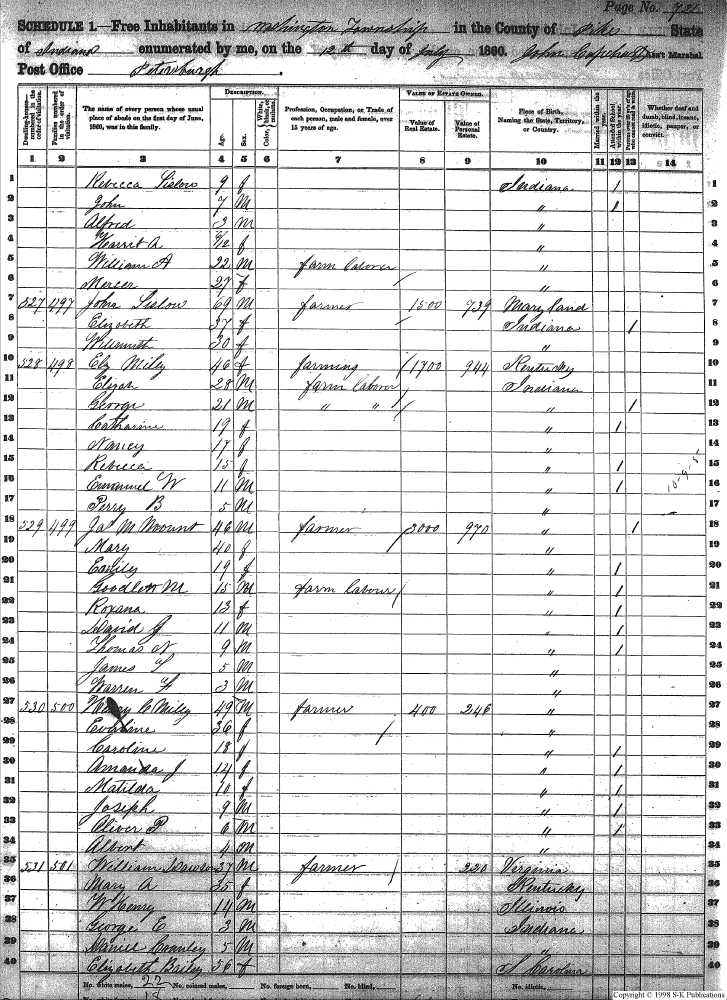 Page No. 721
SCHEDULE 1.—Free Inhabitants in Washington Township in the County of Pike State
of Indiana enumerated by me, on the 12th day of July 1860. John Capehart Ass't Marshal.
Post Office Petersburgh.
Dwelling-houses numbered in the order of visitation.
Families numbered in the order of visitation.
The name of every person whose usual place of abode on the first day of June, 1860, was in this family.
DESCRIPTION.
Age.
Sex.
Color, White, black, or mulatto.
Profession, Occupation, or Trade of each person, male and female, over 15 years of age.
VALUE OF ESTATE OWNED.
Value of Real Estate.
Value of Personal Estate.
Place of Birth, Naming the State, Territory, or Country.
Married within the year.
Attended School within the year.
Whether deaf and dumb, blind, insane, idiotic, pauper, or convict.
1 2 3 4 5 6 7 8 9 10 11 12 13 14
1 Rebecca Sislow 9 f Indiana / 1
2 John 7 M " / 2
3 Alfred 3 M " 3
4 Harrit A /12 f " 4
5 William A 22 M farm labour " 5
6 27 f " 6
7 527 497 John Sislow 69 M farmer 1500 739 Maryland 7
8 Elizabeth 37 f Indiana / 8
9 30 f " 9
10 528 498 Miley 46 f farming 1700 944 Kentucky 10
11 Elijah 28 M farm labour Indiana 11
12 George 21 M " " " / 12
13 Catharine 19 f " / 13
14 Nancy 17 f " 14
15 Rebecca 15 f " / 15
16 Emanuel W 11 M " / 16
17 Perry B 5 M " 17
18 529 499 Jas M Mount 46 M farmer 2000 970 " / 18
19 Mary 40 f " 19
20 Emily 19 f " / 20
21 Goodlet M 15 M farm labour " / 21
22 Roxana 13 f " / 22
23 David J 11 M " / 23
24 Thomas N 9 M " / 24
25 James T 5 M " 25
26 Warren F 3 M " 26
27 530 500 Henry C Miley 49 M farmer 400 246 " 27
28 Eveline 36 f " 28
29 Caroline 18 f " / 29
30 Amanda J 14 f " / 30
31 Matilda 10 f " / 31
32 Joseph 9 M " / 32
33 Oliver P 6 M " / 33
34 Albert 4 M " 34
35 531 501 William Dawson 37 M farmer 220 Virginia
36 Mary A 35 f Kentucky
37 W Henry 14 M Illinois
38 George E 3 M Indiana 38
39 Daniel 5 M " 39
40 Elizabeth Bailey 56 f S Carolina 40
No. white males, 22 No. colored males, No. foreign born, No. blind, No. idiotic,
18
Copyright © 1998 S-K Publications